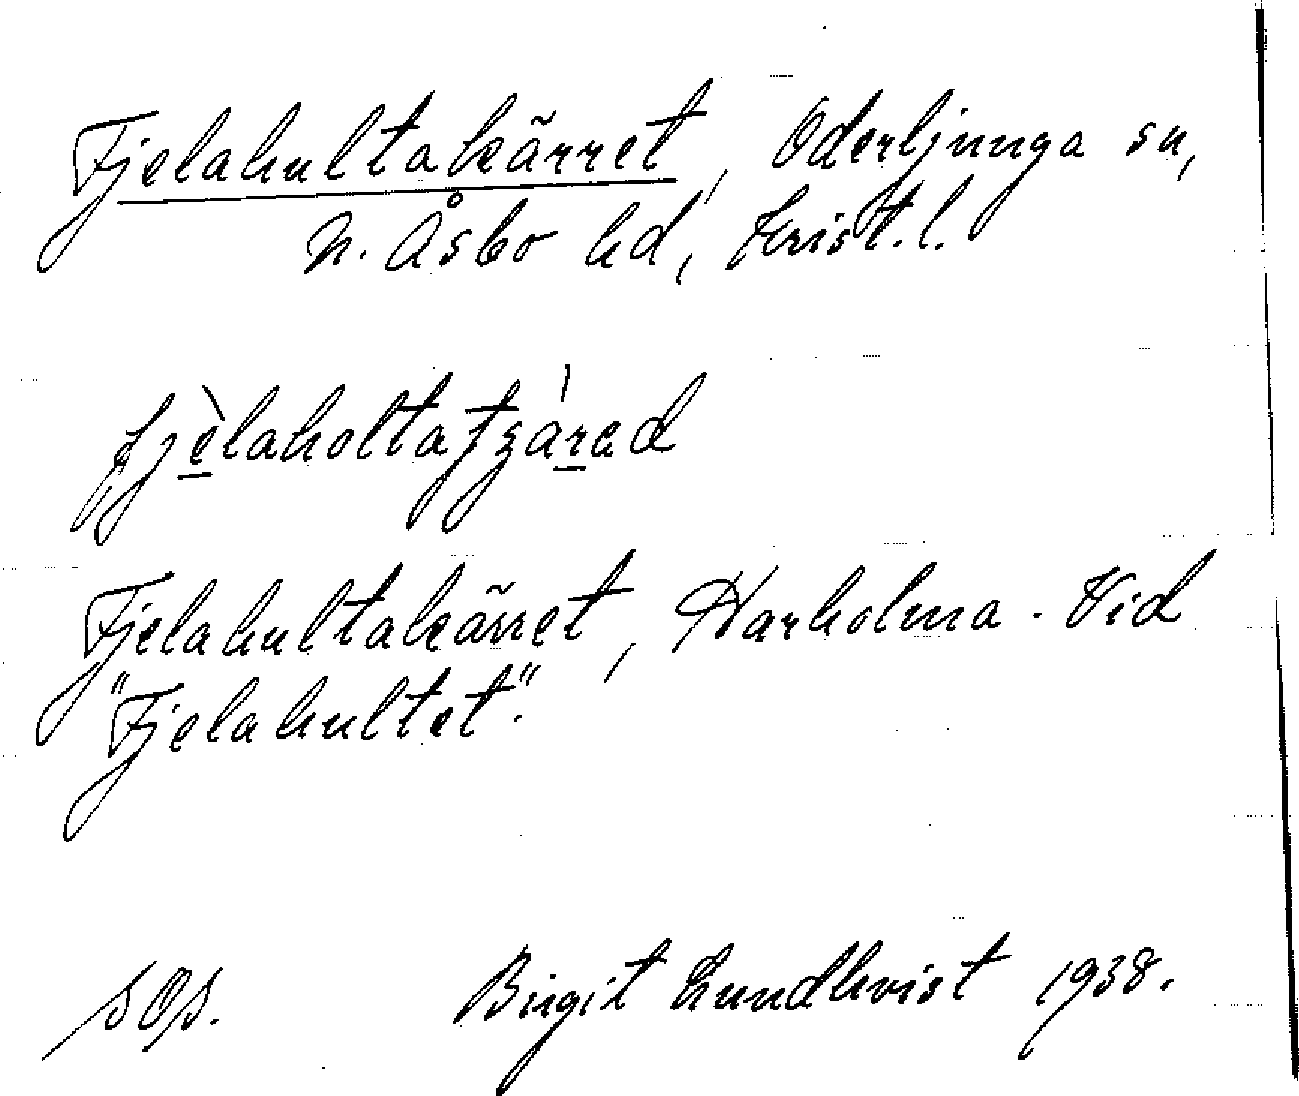 Fjelahultakärret, Oderljunga sn,
N. Åsbo hd, Krist. l.
fjèlaholtatʒàred
Fjelahultakärret, Harholma. Vid
"Fjelahultet".
sOs. Birgit Lundkvist 1938.